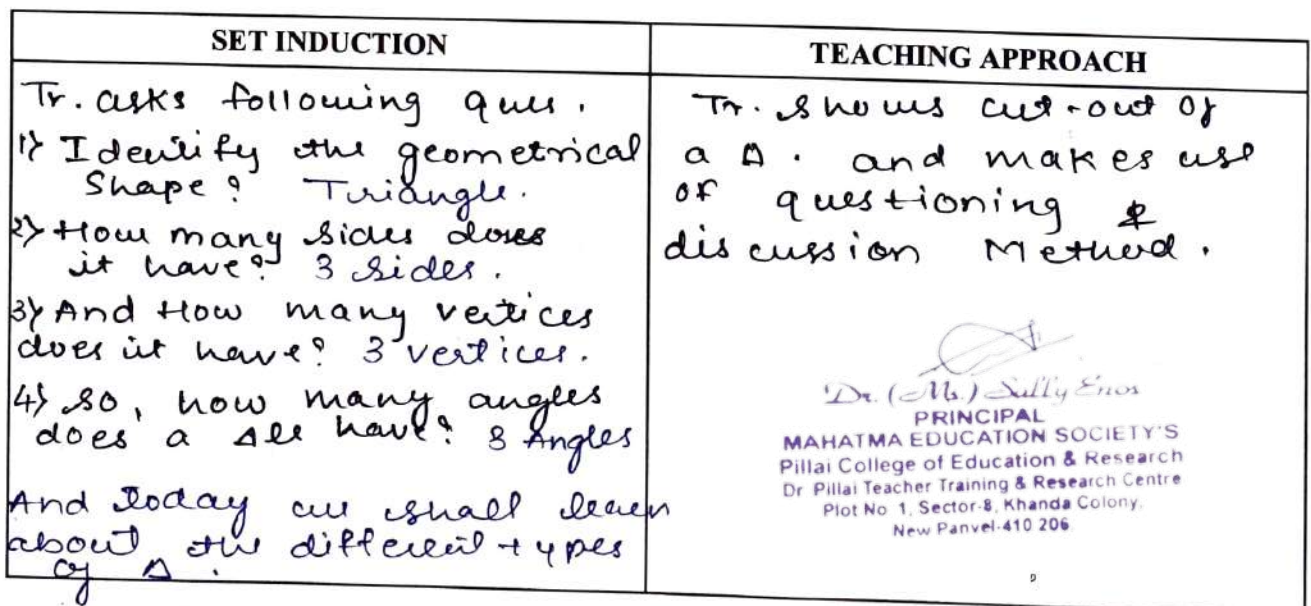 SET INDUCTION
Tr. asks following ques.
1) Identify the geometrical
Shape? Triangle.
2) How many sides does
it have? 3 sides.
3) And How many vertices
does it have? 3 vertices.
4) so, how many angles
does a Δle have? 3 Angles
And today we shall learn
about the different types
of Δ.
TEACHING APPROACH
Tr. shows cut-out of
a Δ. and makes use
of questioning &
discussion Method.
Dr. (Ms.) Sally Enos
PRINCIPAL
MAHATMA EDUCATION SOCIETY'S
Pillai College of Education & Research
Dr Pillai Teacher Training & Research Centre
Plot No 1, Sector-8, Khanda Colony,
New Panvel-410 206